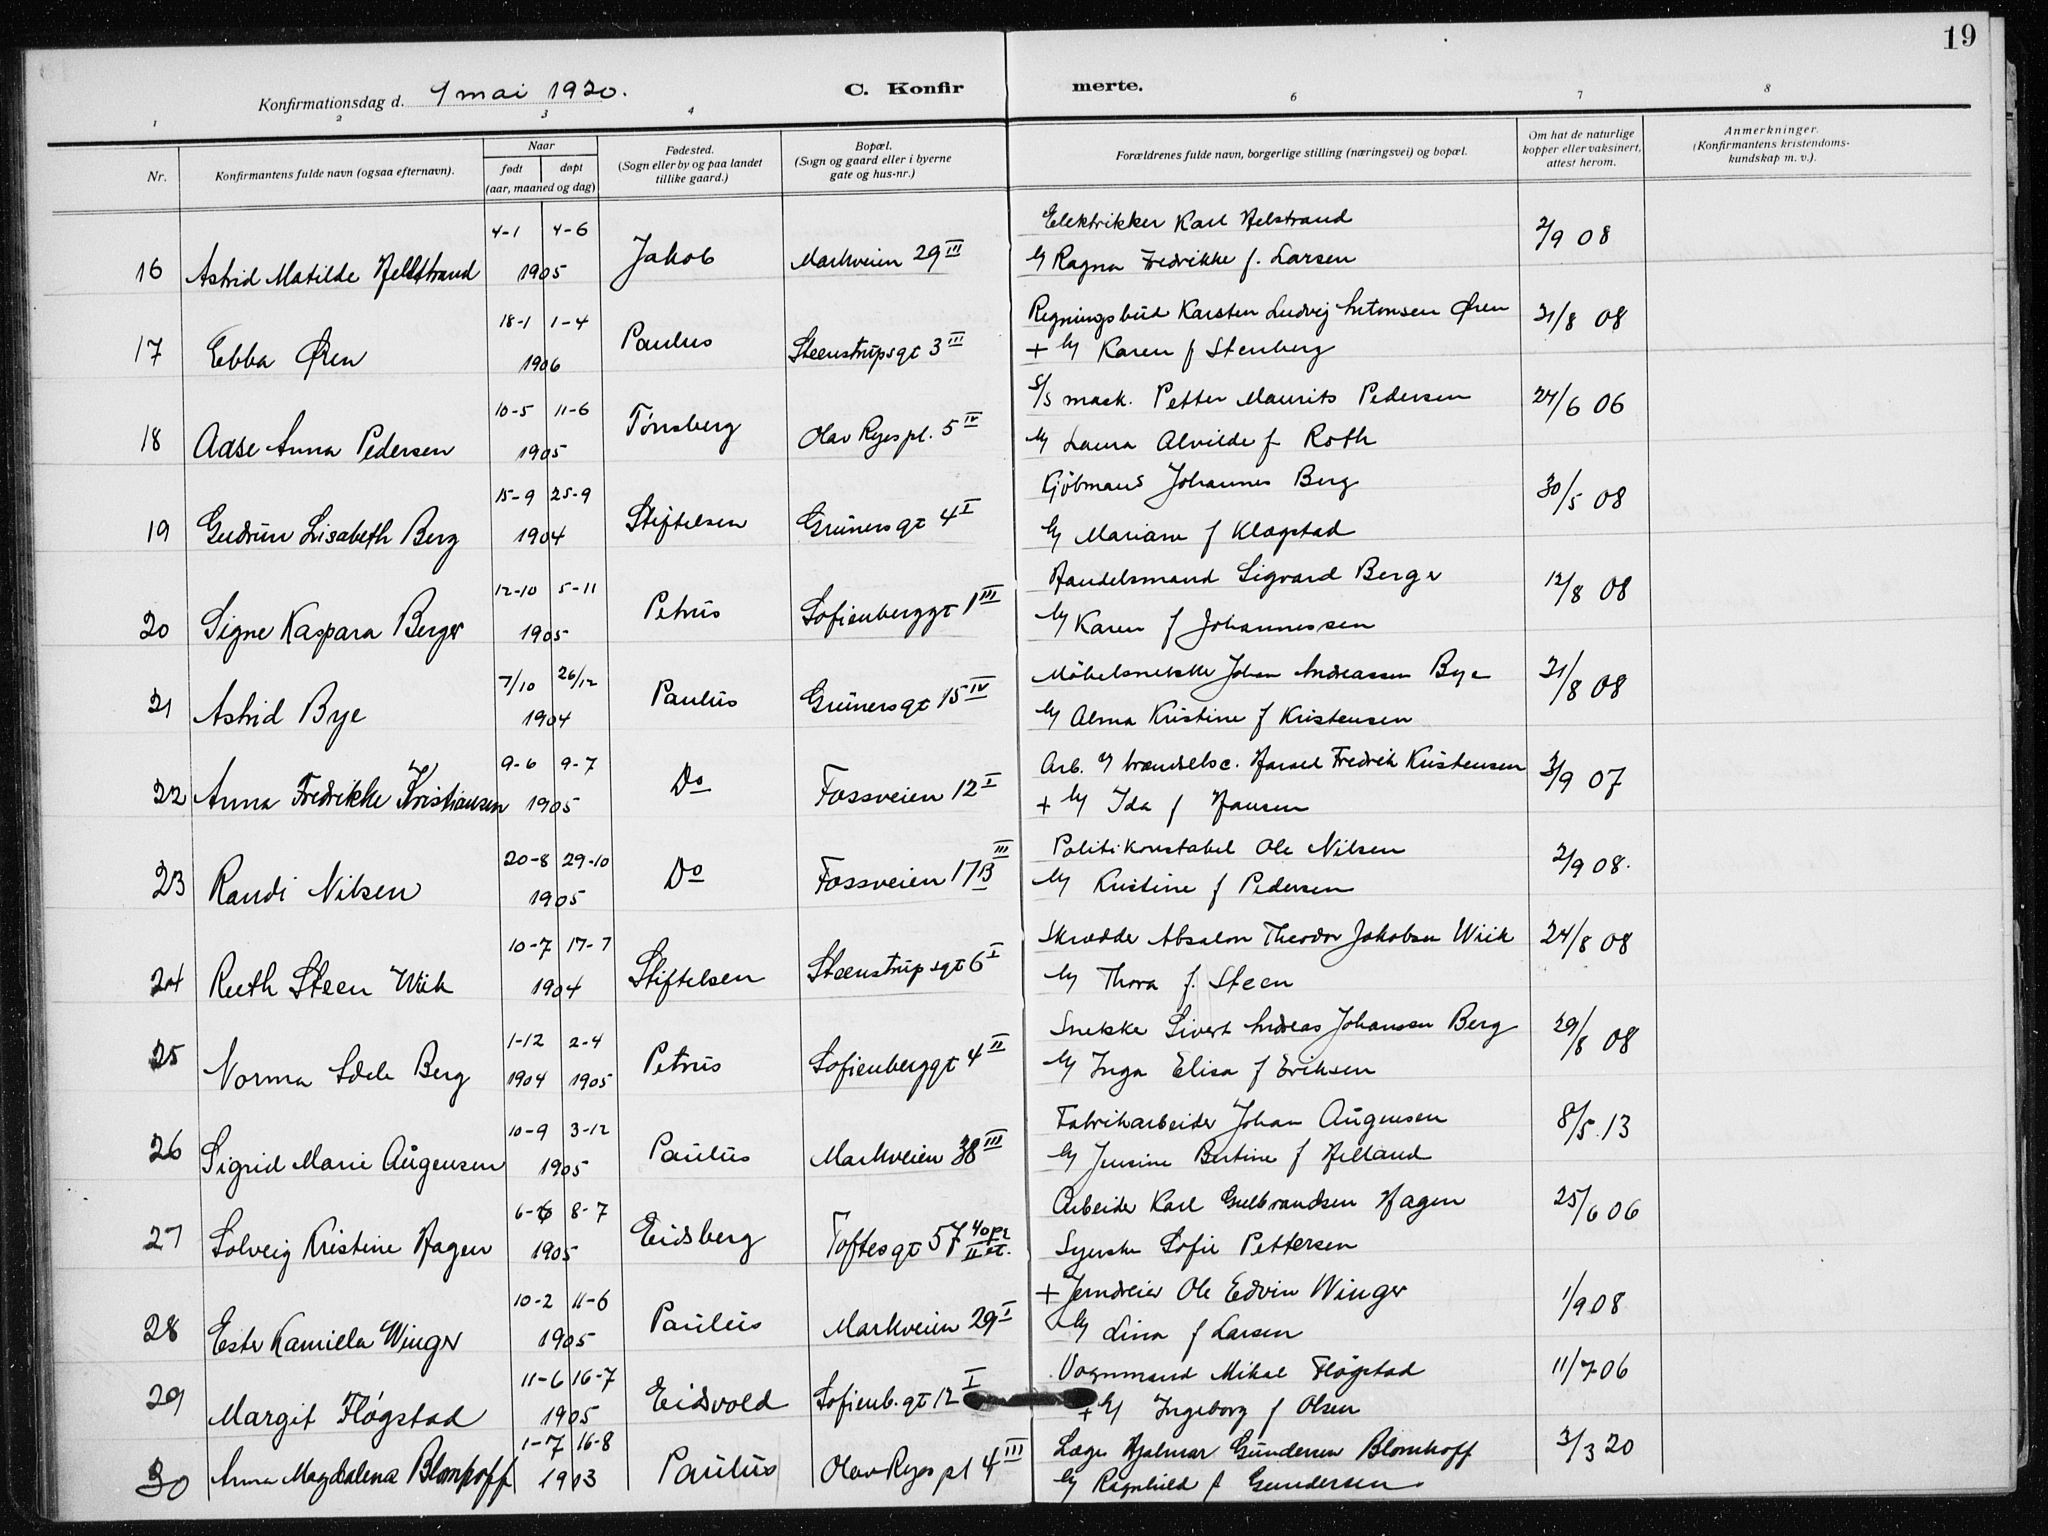 19
Konfirmationsdag d. 9 mai 1920.
C. Konfirmerte.
1 2 3 4 6 7 8
Nr.
Konfirmantens fulde navn (ogsaa efternavn).
Naar
født døpt
(aar, maaned og dag)
Fødested.
(Sogn eller by og paa landet
tillike gaard.)
Bopæl.
(Sogn og gaard eller i byerne
gate og hus-nr.)
Forældrenes fulde navn, borgerlige stilling (næringsvei) og bopæl.
Om hat de naturlige
kopper eller vaksinert,
attest herom.
Anmerkninger.
(Konfirmantens kristendoms-
kundskap m. v.).
4-1 4-6 Elektrikker Karl Helstrand 2/9 08
16 Astrid Matilde Hellstrand 1905 Jakob Markveien 29 III Ragna Fredrikke f. Larsen
18-1 1-4 Regningsbud Karsten Ludvig Antonsen Øren 31/8 08
17 Ebba Øren 1906 Paulus Steenstrupsgt 3 III + Karen f Stenberg
10-5 11-6 S/S mask. Petter Maurits Pedersen 24/6 06
18 Aase Anna Pedersen 1905 Tønsberg Olav Ryes pl. 5 IV Laura Alvilde f Roth
15-9 25-9 Kjøbmand Johannes Berg 30/5 08
19 Gudrun Lisabeth Berg 1904 Stiftelsen Grünersgt 4 I f Klægstad
12-10 5-11 Handelsmand Sigvard Berger 12/8 08
20 Signe Kaspara Berger 1905 Petrus Sofienberggt 1 III Karen f Johannessen
7/10 26/12 Møbelsnekker Johan Andreassen Bye 31/8 08
21 Astrid Bye 1904 Paulus Grünersgt 15 IV Alma Kristine f Kristensen
9-6 9-7 Arb. Harald Fredrik Kristensen 3/9 07
22 Anna Fredrikke Kristiansen 1905 Do Fossveien 12 I + Ida f Hansen
20-8 29-10 Politikonstabel Ole Nilsen 2/9 08.
23 Randi Nilsen 1905 Do Fossveien 17 B III Kristine f Pedersen
10-7 17-7 Skrædder Absalon Theodor Jakobsen Wiik 24/8 08
24 Ruth Steen Wiik 1904 Stiftelsen Steenstrupsgt 6 I Thora f. Steen
1-12 2-4 Snekker Sivert Andreas Johansen Berg 29/8 08
25 Norma Berg 1904 1905 Petrus Sofienberggt 4 II Inga Elisa f Eriksen
10-9 3-12 Fabrikarbeider Johan Augensen 8/5.13
26 Sigrid Marie Augensen 1905 Paulus Markveien 38 III Jensine Bertine f Helland
6-6 8-7 Arbeider Karl Gulbrandsen Hagen 25/6 06
27 Solveig Kristine Hagen 1905 Eidsberg Toftesgt 57 Syerske Sofie Pettersen
10-2 11-6 + Jerndreier Ole Edvin Winger 1/9 08
28 Ester Kamilla Winger 1905 Paulus Markveien 29 I Lina f Larsen
11-6 16-7 Vognmand Mikal Fløgstad 11/7 06
29 Margit Fløgstad 1905 Eidsvold Sofienb.gt 12 I + Ingeborg f Olsen
1-7 16-8 Læge Hjalmar Gundersen Blomhoff 3/3 20
30 Anna Magdalena Blomhoff 1903 Paulus Olav Ryes pl 4 III Ragnhild f Gundersen